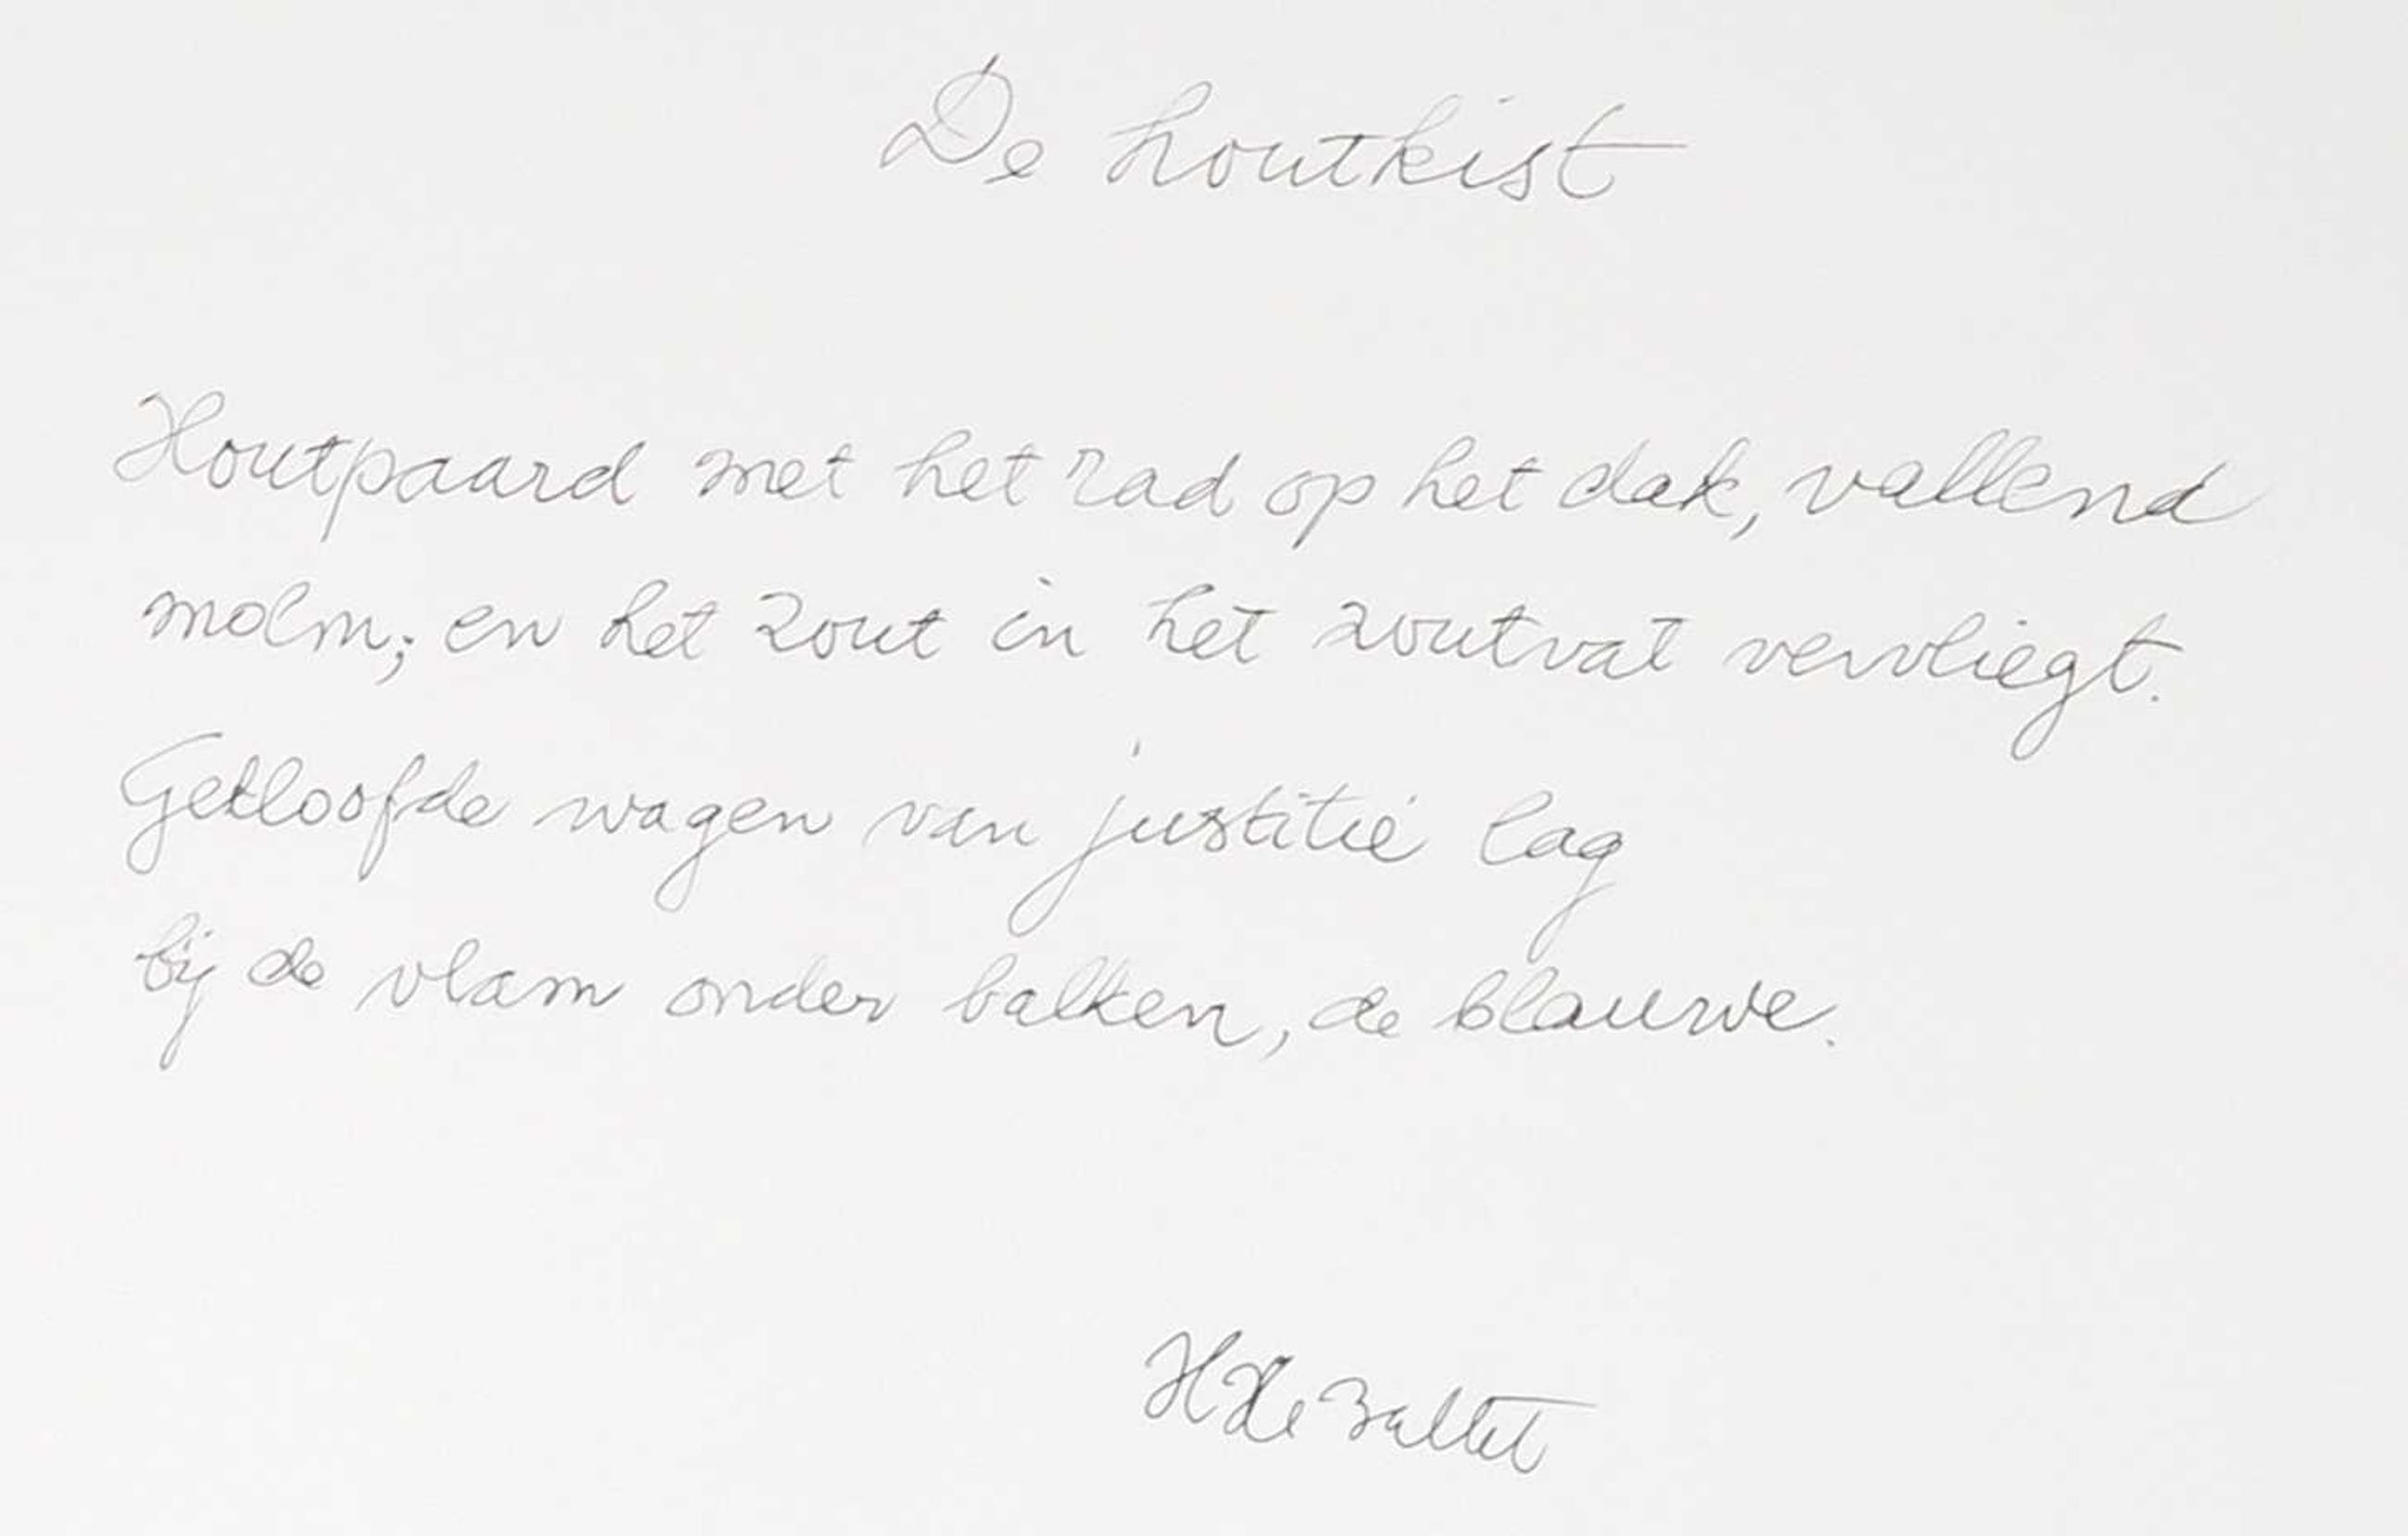 De houtkist
Houtpaard met het rad op het dak, vallend
molm; en het zout in het zoutvat vervliegt.
Gekloofde wagen van justitie lag
bij de vlam onder balken, de blauwe.